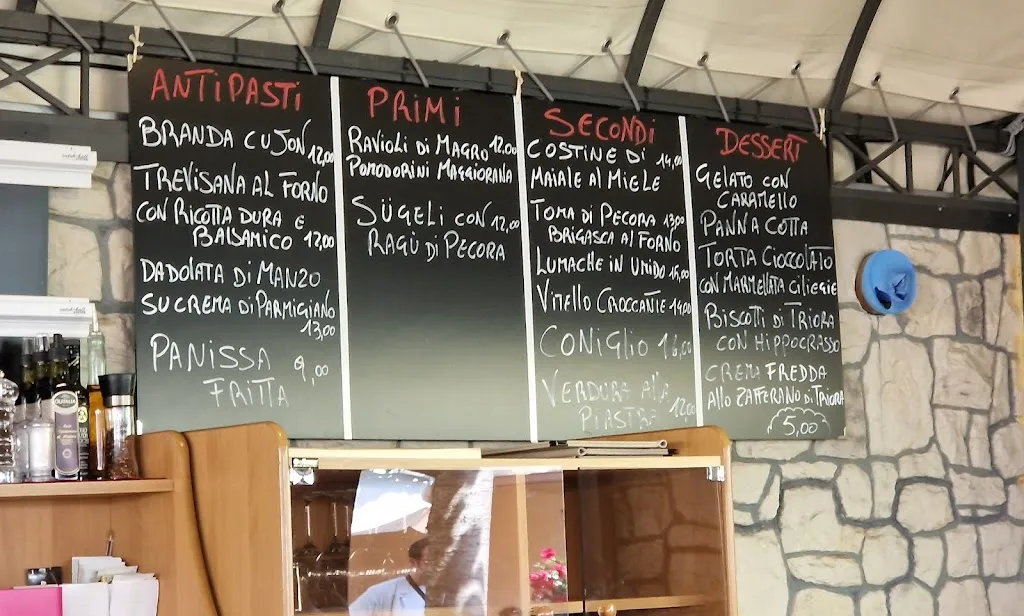 ANTIPASTI
BRANDA CUJON 12,00
TREVISANA AL FORNO
CON RICOTTA DURA E
BALSAMICO 12,00
DADOLATA DI MANZO
SU CREMA DI PARMIGIANO
13,00
PANISSA 9,00
FRITTA
PRIMI
RAVIOLI DI MAGRO 12,00
POMODORINI MAGGIORANA
SÜGELI CON 12,00
RAGÙ DI PECORA
SECONDI
COSTINE DI 14,00
MAIALE AL MIELE
TOMA DI PECORA 13,00
BRIGASCA AL FORNO
LUMACHE IN UMIDO 15,00
VITELLO CROCCANTE 14,00
CONIGLIO 14,00
VERDURA ALLA
PIASTRA 12,00
DESSERT
GELATO CON
CARAMELLO
PANNA COTTA
TORTA CIOCCOLATO
CON MARMELLATA CILIEGIE
BISCOTTI DI TRIORA
CON HIPPOCRASSO
CREMA FREDDA
ALLO ZAFFERANO DI TRIORA
5,00